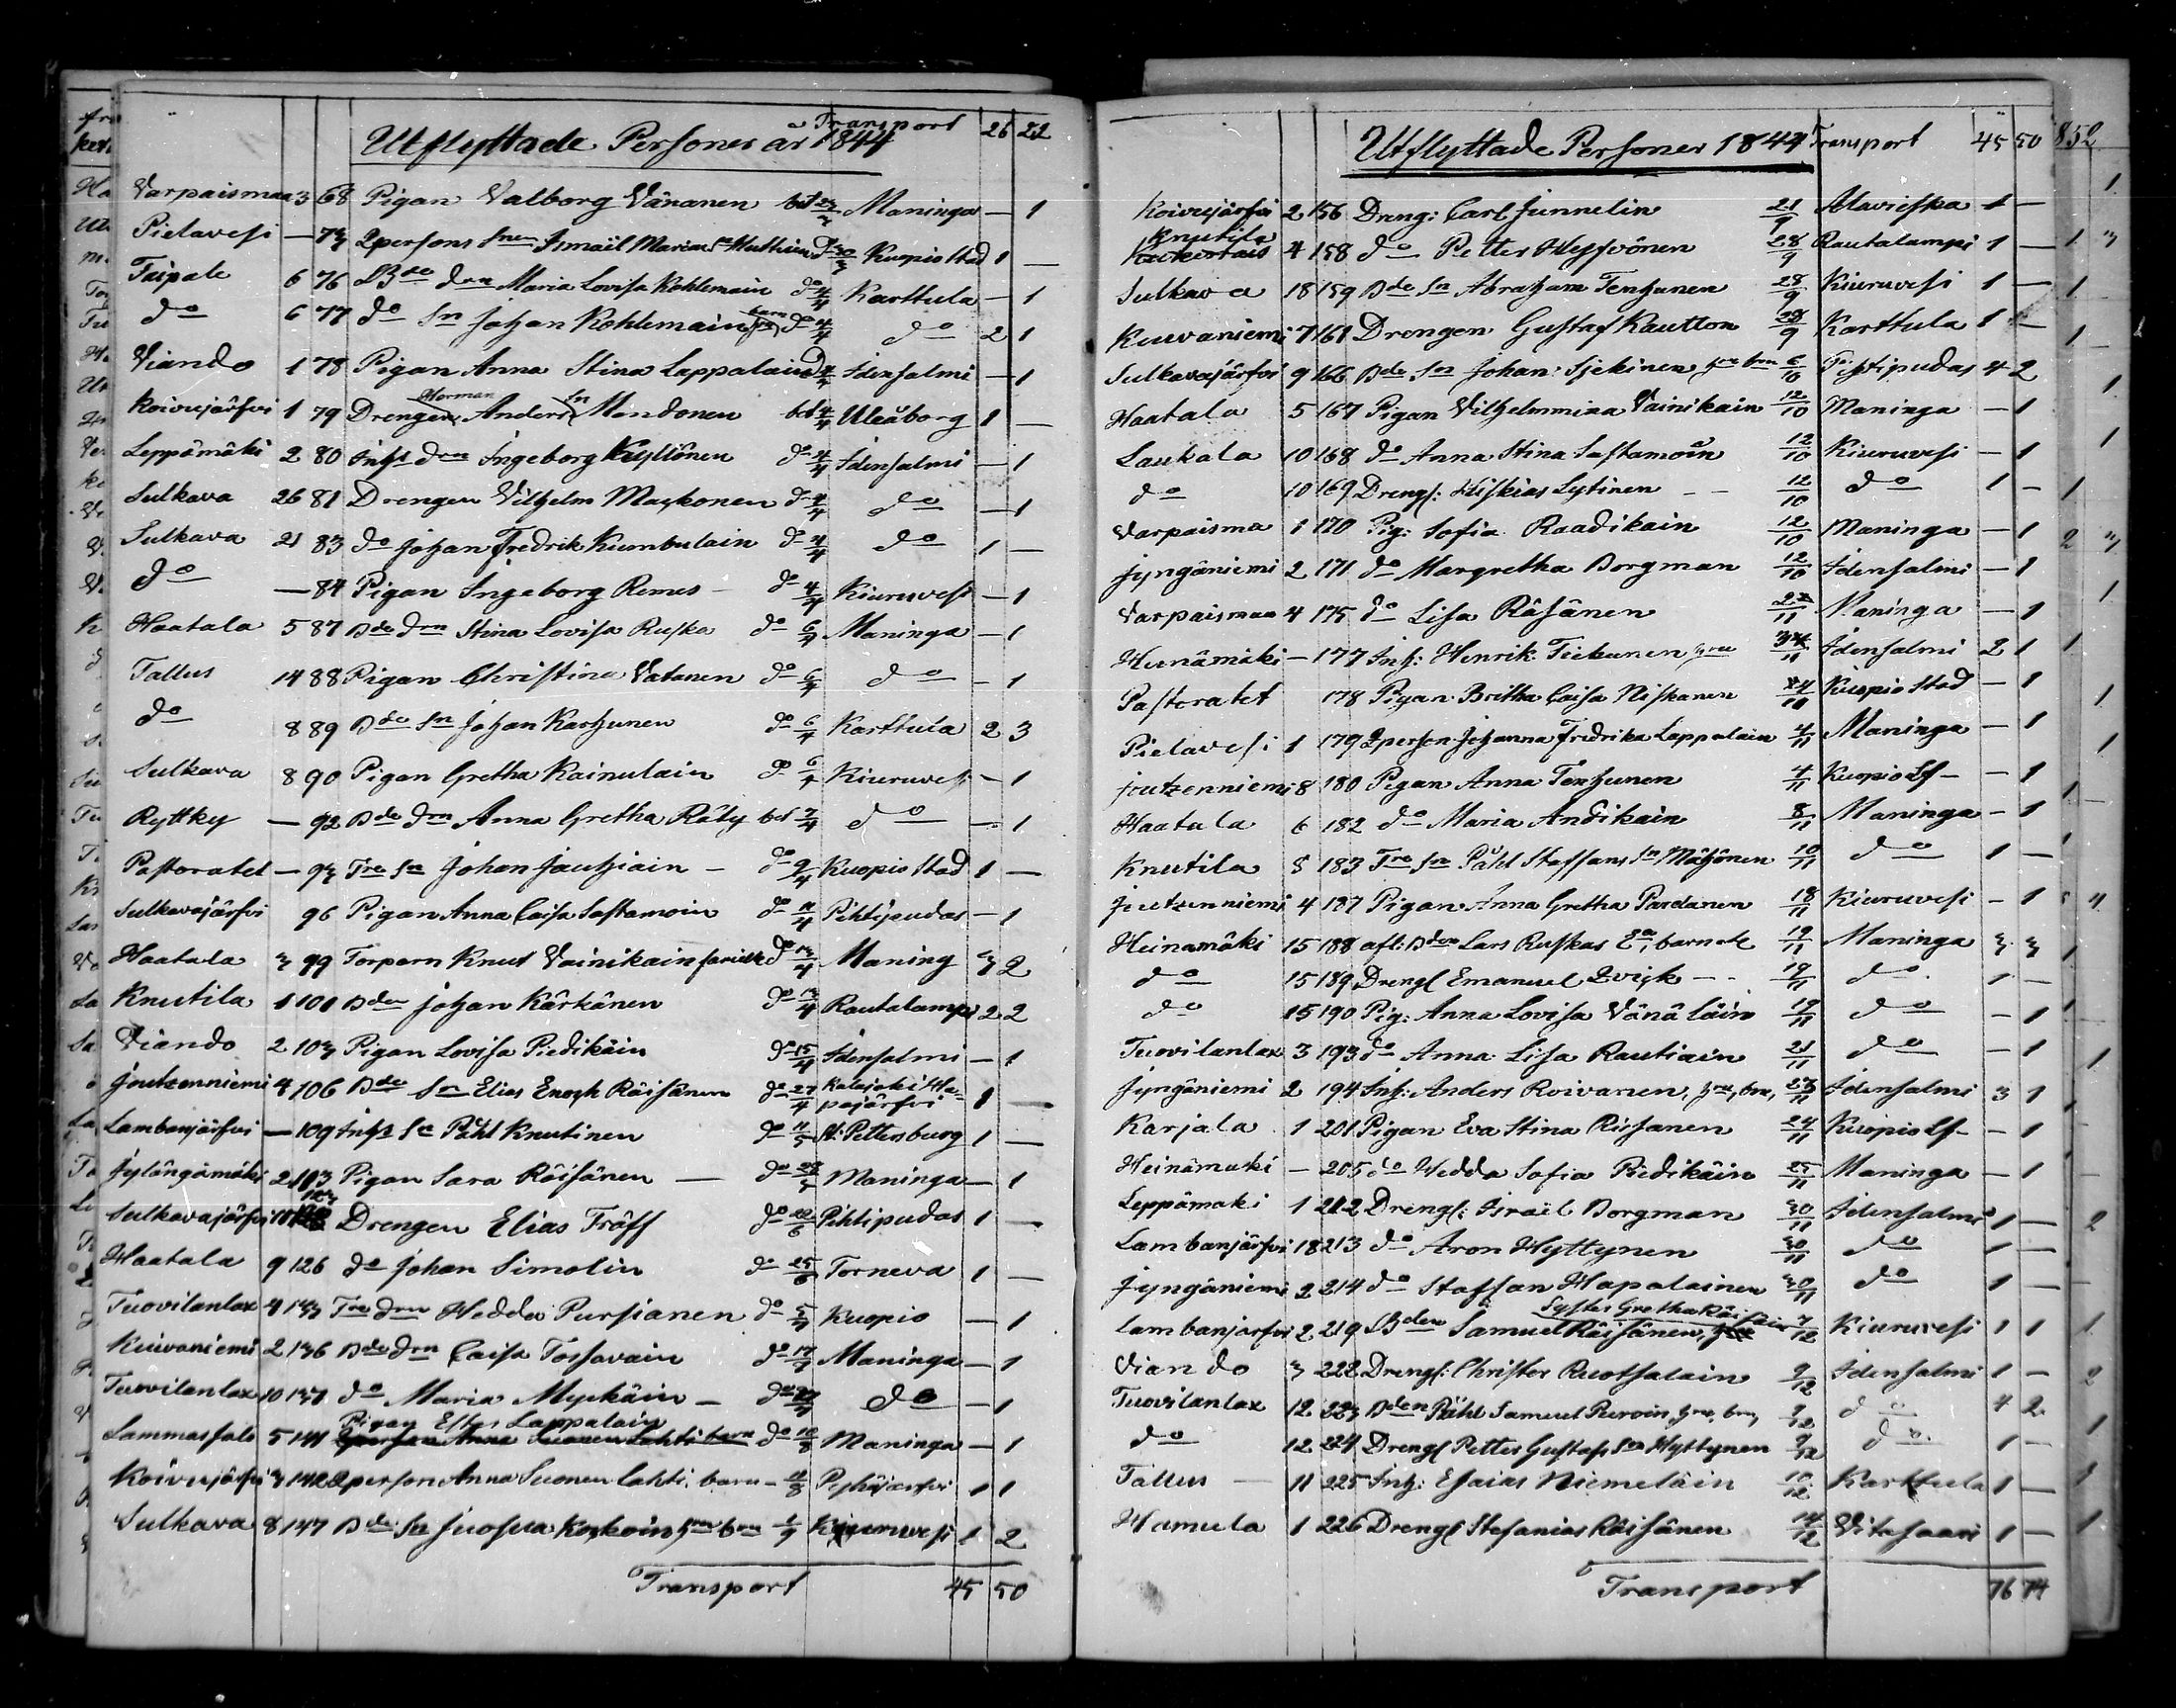 Utflyttade Personer år 1844 Transport 26 22
Varpaismaa 3 68 Pigan Valborg Vänänen bet Maninga — 1
Pielavesi — 73 Qpersons Sn Ismaël Mariæ Sn Huthin do Kuopio Stad 1 —
Taipale 6 76 Bde dr Maria Lovisa Kohlemain do 4/4 Karttula — 1
do 6 77 do Sn Johan Kohlemain do 4/4 do 2 1
Viando 1 78 Pigan Anna Stina Lappalain do 4/4 Idensalmi — 1
Koivujärfvi 1 79 Drengen Herman Anders Sn Mondonen bet 4/4 Uleåborg 1 —
Leppämäki 2 80 Inhs drn Ingeborg Kyllönen do 4/4 Idensalmi — 1
Sulkava 26 81 Drengen Vilhelm Mackonen do 4/4 do — 1
Sulkava 21 83 do Johan Fredrik Kumbulain do 4/4 do 1 —
do — 84 Pigan Ingeborg Remes do 4/4 Kiuruvesi — 1
Haatala 5 87 Bde drn Stina Lovisa Ruska do 6/4 Maninga — 1
Tallus 14 88 Pigan Christina Vatanen do 6/4 do — 1
do 8 89 Bde Sn Johan Karhunen do 6/4 Karttula 2 3
Sulkava 8 90 Pigan Gretha Kainulain do 6/4 Kiuruvesi — 1
Ryttky — 92 Bde drn Anna Gretha Räty bet 7/4 do — 1
Pastoratet — 93 Tre Sn Johan Jauhiain — do 9/4 Kuopio Stad 1 —
Sulkavajärfvi 96 Pigan Anna Caisa Sastamoin do 11/4 Pihtipudas — 1
Haatala 3 99 Torparn Knut Vainikain do 13/4 Maning 3 2
Knutila 1 101 Bden Johan Kärkänen do 13/4 Rautalampi 2 2
Viando 2 103 Pigan Lovisa Piedikäin do 15/4 Idensalmi — 1
Joutzenniemi 4 106 Bde Sn Elias Enoch Räisänen do 27/4 Kalajoki Ha-
pajärfvi 1 —
Lambanjärfvi — 109 Inhs Sn Påhl Knutinen do 11/5 St. Pettersburg 1 —
Jylängämäki 2 113 Pigan Sara Räisänen — do 28/5 Maninga — 1
Sulkavajärfvi 11 123 Drengen Elias Träff do 22/6 Pihtipudas 1 —
Haatala 9 126 do Johan Simolin do 25/6 Torneva 1 —
Tuovilanlax 4 133 Tre drn Hedda Pursianen do 5/7 Kuopio — 1
Kuivaniemi 2 136 Bde drn Caisa Tossavain do 17/7 Maninga — 1
Tuovilanlax 10 137 do Maria Myckäin — do do — 1
Pigan Ester Lappalain
Lammassalo 5 141 do 10/8 Maninga — 1
Koivujärfvi 3 142 Qperson Anna Suonen Lahti, barn — 11/8 Pyhäjärfvi 1 1
Sulkava 8 147 Bde Sn Juosua Kockoin hru brn 1/9 Kiuruvesi 1 2
Transport 45 50
Utflyttade Personer 1844 Transport 45 50
Koivujärfvi 2 156 Dreng: Carl Junnelin 21/9 Alavieska 1 —
Knutila
4 158 do Petter Hyfvönen 28/9 Rautalampi 1 —
Sulkava 18 159 Bde Sn Abraham Tenhunen 28/9 Kiuruvesi 1 —
Kuvaniemi 7 161 Drengen Gustaf Kautton 28/9 Karttula 1 —
Sulkavajärfvi 9 166 Bde Sn Johan Tjekinen hru brn 6/10 Pihtipudas 4 2
Haatala 5 167 Pigan Vilhelmmina Vainikain 12/10 Maninga — 1
Laukala 10 168 do Anna Stina Sastamoin 12/10 Kiuruvesi — 1
do 10 169 Drengs: Hiskias Lytinen 12/10 do 1 —
Varpaisma 1 170 Pig: Sofia Raadikain 12/10 Maninga — 1
Jyngäniemi 2 171 do Margretha Borgman 12/10 Idensalmi — 1
Varpaismaa 4 175 do Lisa Räsänen Maninga — 1
Hunämäki — 177 Inh: Henrik Tiekunen hru Idensalmi 2 1
Pastoratet 178 Pigan Britha Caisa Niskanen Kuopio Stad — 1
Pielavesi 1 179 Qperson Johanna Fredrika Lappalain 4/11 Maninga — 1
Joutzenniemi 8 180 Pigan Anna Tenhunen 4/11 Kuopio Lf — 1
Haatala 6 182 do Maria Andikain 8/11 Maninga — 1
Knutila 8 183 Tre Sn Påhl Staffans Sn Mähönen 10/11 do 1 —
Joutzenniemi 4 187 Pigan Anna Gretha Pardanen 18/11 Kiuruvesi — 1
Heinamäki 15 188 afl: Bden Lars Ruskas Ea, barn 19/11 Maninga 3 3
do 15 189 Drengs Emanuel Qvick — 19/11 do 1 —
do 15 190 Pig: Anna Lovisa Vänäläin 19/11 do — 1
Tuovilanlax 3 193 do Anna Lisa Rautiain 21/11 do — 1
Jyngäniemi 2 194 Inh: Anders Roivanen, hru, brn, 23/11 Idensalmi 3 1
Karjala 1 201 Pigan Eva Stina Rissanen 24/11 Kuopio Lf — 1
Heinämäki — 205 do Hedda Sofia Piedikäin 25/11 Maninga — 1
Leppämäki 1 212 Drengs: Israël Borgman 30/11 Idensalmi 1 —
Lambanjärfvi 18 213 do Aron Hyttynen 30/11 do 1 —
Jyngäniemi 2 214 do Staffan Hapalainen 30/11 do 1 —
Syster Gretha Räisäin
Lambanjärfvi 2 219 Bden Samuel Räisänen, 7/12 Kiuruvesi 1 1
Viando 3 222 Drengs: Christer Ruotsalain 9/12 Idensalmi 1 —
Tuovilanlax 12 223 Bden Påhl Samuel Puroin, hru, brn, 9/12 do 4 2
do 12 224 Drengs Petter Gustafs Sn Hyttynen 9/12 do 1 —
Tallus — 11 225 Inh: Esaias Niemeläin 10/12 Karttula 1 —
Hamula 1 226 Drengs Stefanias Räisänen 14/12 Vitasaari 1 —
Transport 76 74